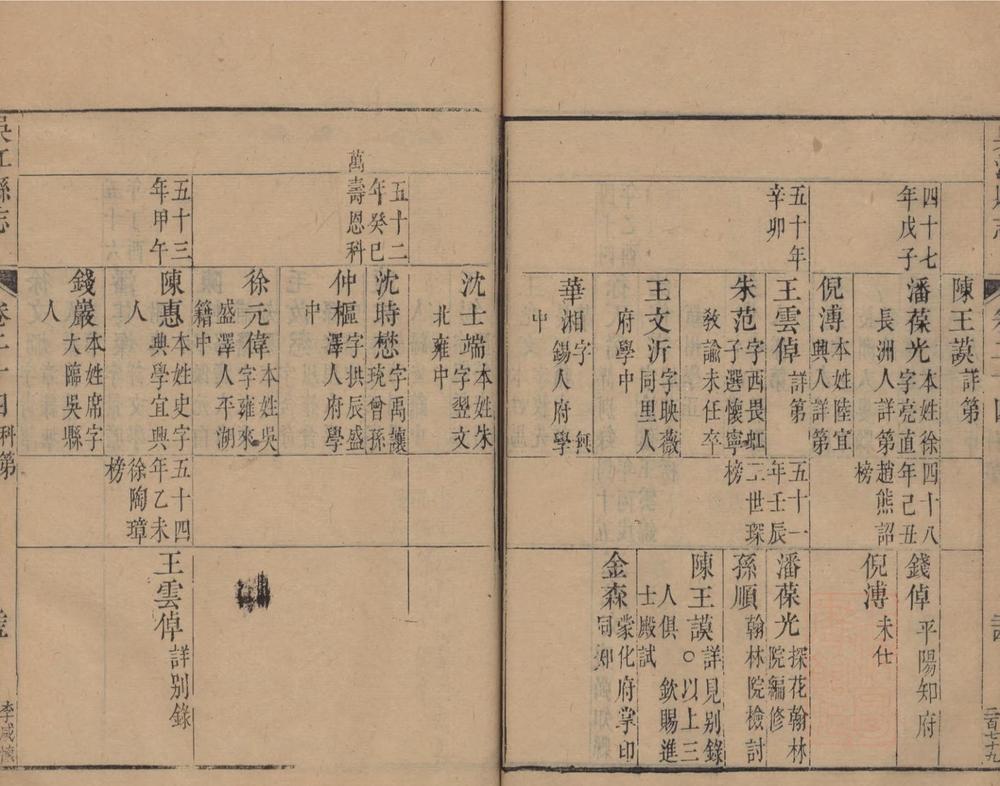 陳王謨詳第
四十七
年戊子
潘葆光本姓徐
字亮直
長洲人詳第
倪溥本姓陸宜
興人詳第
五十年
辛卯
王雲倬詳第
朱范字西畏虹
子選懷寧
敎諭未任卒
王文沂字映薇
同里人
府學中
華湘字
無錫人府學
中
四十八
年己丑
趙熊詔
榜
五十一
年壬辰
王世琛
榜
錢倬平陽知府
倪溥未仕
潘葆光探花翰林
院編修
孫順翰林院檢討
陳王謨詳見别錄
○以上三
人俱欽賜進
士殿試
金森蒙化府掌印
同知
二百七十九
沈士端本姓朱
字翌文
北雍中
五十二
年癸巳
萬壽恩科
沈時懋字禹讓
琓曾孫
仲樞字拱辰盛
澤人府學
中
徐元偉本姓吳
字雍來
盛澤人平湖
籍中
五十三
年甲午
陳惠本姓史字
典學宜興
人
錢巖本姓席字
大臨吳縣
人
五十四
年乙未
徐陶璋
榜
王雲倬詳别錄
吳江縣志
卷二十四
科第